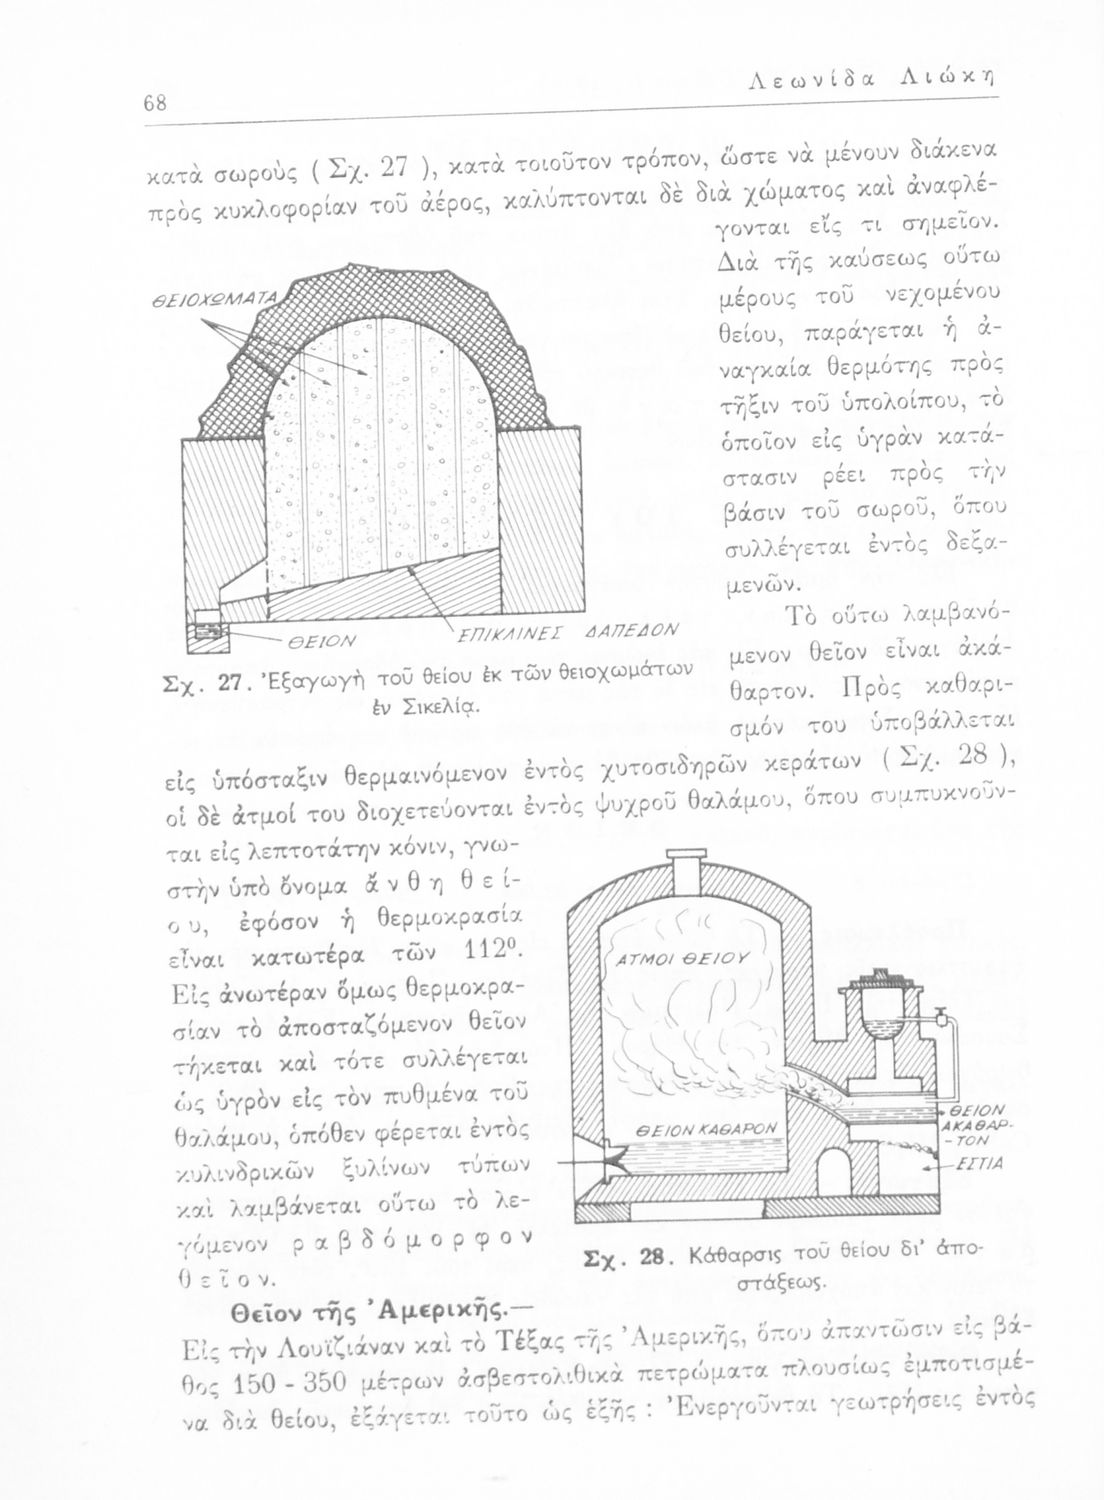 68
Λεωνίδα Λιώκη
κατὰ σωροὺς ( Σχ. 27 ), κατὰ τοιοῦτον τρόπον, ὥστε νὰ μένουν διάκενα
πρὸς κυκλοφορίαν τοῦ ἀέρος, καλύπτονται δὲ διὰ χώματος καὶ ἀναφλέ-
γονται εἴς τι σημεῖον.
Διὰ τῆς καύσεως οὕτω
μέρους τοῦ νεχομένου
θείου, παράγεται ἡ ἀ-
ναγκαία θερμότης πρὸς
τῆξιν τοῦ ὑπολοίπου, τὸ
ὁποῖον εἰς ὑγρὰν κατά-
στασιν ρέει πρὸς τὴν
βάσιν τοῦ σωροῦ, ὅπου
συλλέγεται ἐντὸς δεξα-
μενῶν.
ΘΕΙΟΧΩΜΑΤΑ
ΘΕΙΟΝ
ΕΠΙΚΛΙΝΕΣ ΔΑΠΕΔΟΝ
Σχ. 27. Ἐξαγωγὴ τοῦ θείου ἐκ τῶν θειοχωμάτων
ἐν Σικελίᾳ.
Τὸ οὕτω λαμβανό-
μενον θεῖον εἶναι ἀκά-
θαρτον. Πρὸς καθαρι-
σμόν του ὑποβάλλεται
εἰς ὑπόσταξιν θερμαινόμενον ἐντὸς χυτοσιδηρῶν κεράτων ( Σχ. 28 ),
οἱ δὲ ἀτμοί του διοχετεύονται ἐντὸς ψυχροῦ θαλάμου, ὅπου συμπυκνοῦν-
ται εἰς λεπτοτάτην κόνιν, γνω-
στὴν ὑπὸ ὄνομα ἄνθη θεί-
ου, ἐφόσον ἡ θερμοκρασία
εἶναι κατωτέρα τῶν 112⁰.
Εἰς ἀνωτέραν ὅμως θερμοκρα-
σίαν τὸ ἀποσταζόμενον θεῖον
τήκεται καὶ τότε συλλέγεται
ὡς ὑγρὸν εἰς τὸν πυθμένα τοῦ
θαλάμου, ὁπόθεν φέρεται ἐντὸς
κυλινδρικῶν ξυλίνων τύπων
καὶ λαμβάνεται οὕτω τὸ λε-
γόμενον ραβδόμορφον
θεῖον.
ΑΤΜΟΙ ΘΕΙΟΥ
ΘΕΙΟΝ ΚΑΘΑΡΟΝ
ΘΕΙΟΝ
ΑΚΑΘΑΡ-
-ΤΟΝ
ΕΣΤΙΑ
Σχ. 28. Κάθαρσις τοῦ θείου δι' ἀπο-
στάξεως.
Θεῖον τῆς Ἀμερικῆς.—
Εἰς τὴν Λουϊζιάναν καὶ τὸ Τέξας τῆς Ἀμερικῆς, ὅπου ἀπαντῶσιν εἰς βά-
θος 150 - 350 μέτρων ἀσβεστολιθικὰ πετρώματα πλουσίως ἐμποτισμέ-
να διὰ θείου, ἐξάγεται τοῦτο ὡς ἑξῆς : Ἐνεργοῦνται γεωτρήσεις ἐντὸς